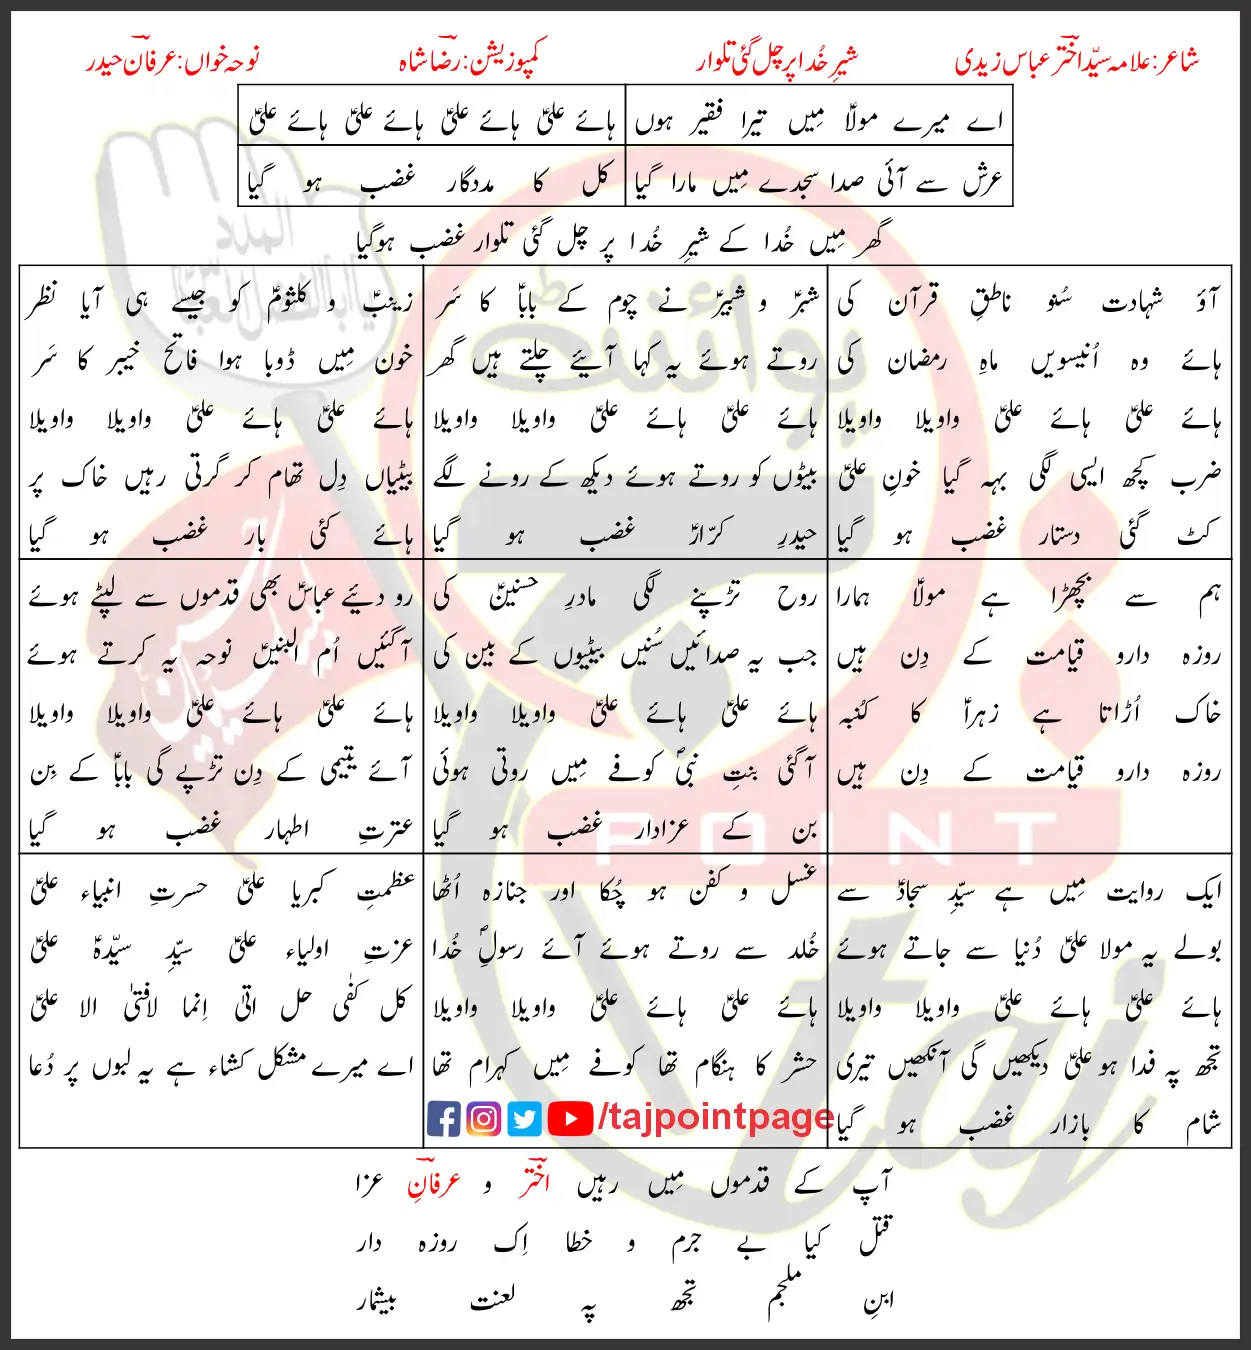 شاعر: علامہ سیّد اختر عباس زیدی
شیرِ خُدا پر چل گئی تلوار
کمپوزیشن: رضا شاہ
نوحہ خواں: عرفان حیدر
اے میرے مولاؑ مِیں تیرا فقیر ہوں
ہائے علیؑ ہائے علیؑ ہائے علیؑ ہائے علیؑ
عرش سے آئی صدا سجدے مِیں مارا گیا
کل کا مددگار غضب ہو گیا
گھر مِیں خُدا کے شیرِ خُدا پر چل گئی تلوار غضب ہوگیا
آؤ شہادت سُنو ناطقِ قرآن کی
ہائے وہ اُنیسویں ماہِ رمضان کی
ہائے علیؑ ہائے علیؑ واویلا واویلا
ضرب کچھ ایسی لگی بہہ گیا خونِ علیؑ
کٹ گئی دستار غضب ہو گیا
شبرؑ و شبیرؑ نے چوم کے باباؑ کا سَر
روتے ہوئے یہ کہا آئیے چلتے ہیں گھر
ہائے علیؑ ہائے علیؑ واویلا واویلا
بیٹوں کو روتے ہوئے دیکھ کے رونے لگے
حیدرِ کرّارؑ غضب ہو گیا
زینبؑ و کلثومؑ کو جیسے ہی آیا نظر
خون مِیں ڈوبا ہوا فاتح خیبر کا سَر
ہائے علیؑ ہائے علیؑ واویلا واویلا
بیٹیاں دِل تھام کر گرتی رہیں خاک پر
ہائے کئی بار غضب ہو گیا
ہم سے بچھڑا ہے مولاؑ ہمارا
روزہ دارو قیامت کے دِن ہیں
خاک اُڑاتا ہے زہراؑ کا کُنبہ
روزہ دارو قیامت کے دِن ہیں
روح تڑپنے لگی مادرِ حسنینؑ کی
جب یہ صدائیں سُنیں بیٹیوں کے بین کی
ہائے علیؑ ہائے علیؑ واویلا واویلا
آ گئی بنتِ نبیؐ کوفے مِیں روتی ہوئی
بن کے عزادار غضب ہو گیا
رو دئیے عباسؑ بھی قدموں سے لپٹے ہوئے
آ گئیں اُم البنیںؑ نوحہ یہ کرتے ہوئے
ہائے علیؑ ہائے علیؑ واویلا واویلا
آئے یتیمی کے دِن تڑپے گی باباؑ کے بِن
عترتِ اطہار غضب ہو گیا
ایک روایت مِیں ہے سیّدِ سجادؑ سے
بولے یہ مولا علیؑ دُنیا سے جاتے ہوئے
ہائے علیؑ ہائے علیؑ واویلا واویلا
تجھ پہ فدا ہو علیؑ دیکھیں گی آنکھیں تیری
شام کا بازار غضب ہو گیا
غسل و کفن ہو چُکا اور جنازہ اُٹھا
خُلد سے روتے ہوئے آئے رسولِؐ خُدا
ہائے علیؑ ہائے علیؑ واویلا واویلا
حشر کا ہنگام تھا کوفے مِیں کہرام تھا
/tajpointpage
عظمتِ کبریا علیؑ حسرتِ انبیاء علیؑ
عزتِ اولیاء علیؑ سیّدِ سیّدہؑ علیؑ
کل کفٰی حل اتیٰ اِنما لافتیٰ الا علیؑ
اے میرے مشکل کشاء ہے یہ لبوں پر دُعا
آپ کے قدموں مِیں رہیں اختر و عرفانِ عزا
قتل کیا بے جرم و خطا اِک روزہ دار
ابنِ ملجم تجھ پہ لعنت بیشمار
پوائنٹ
POINT
taj